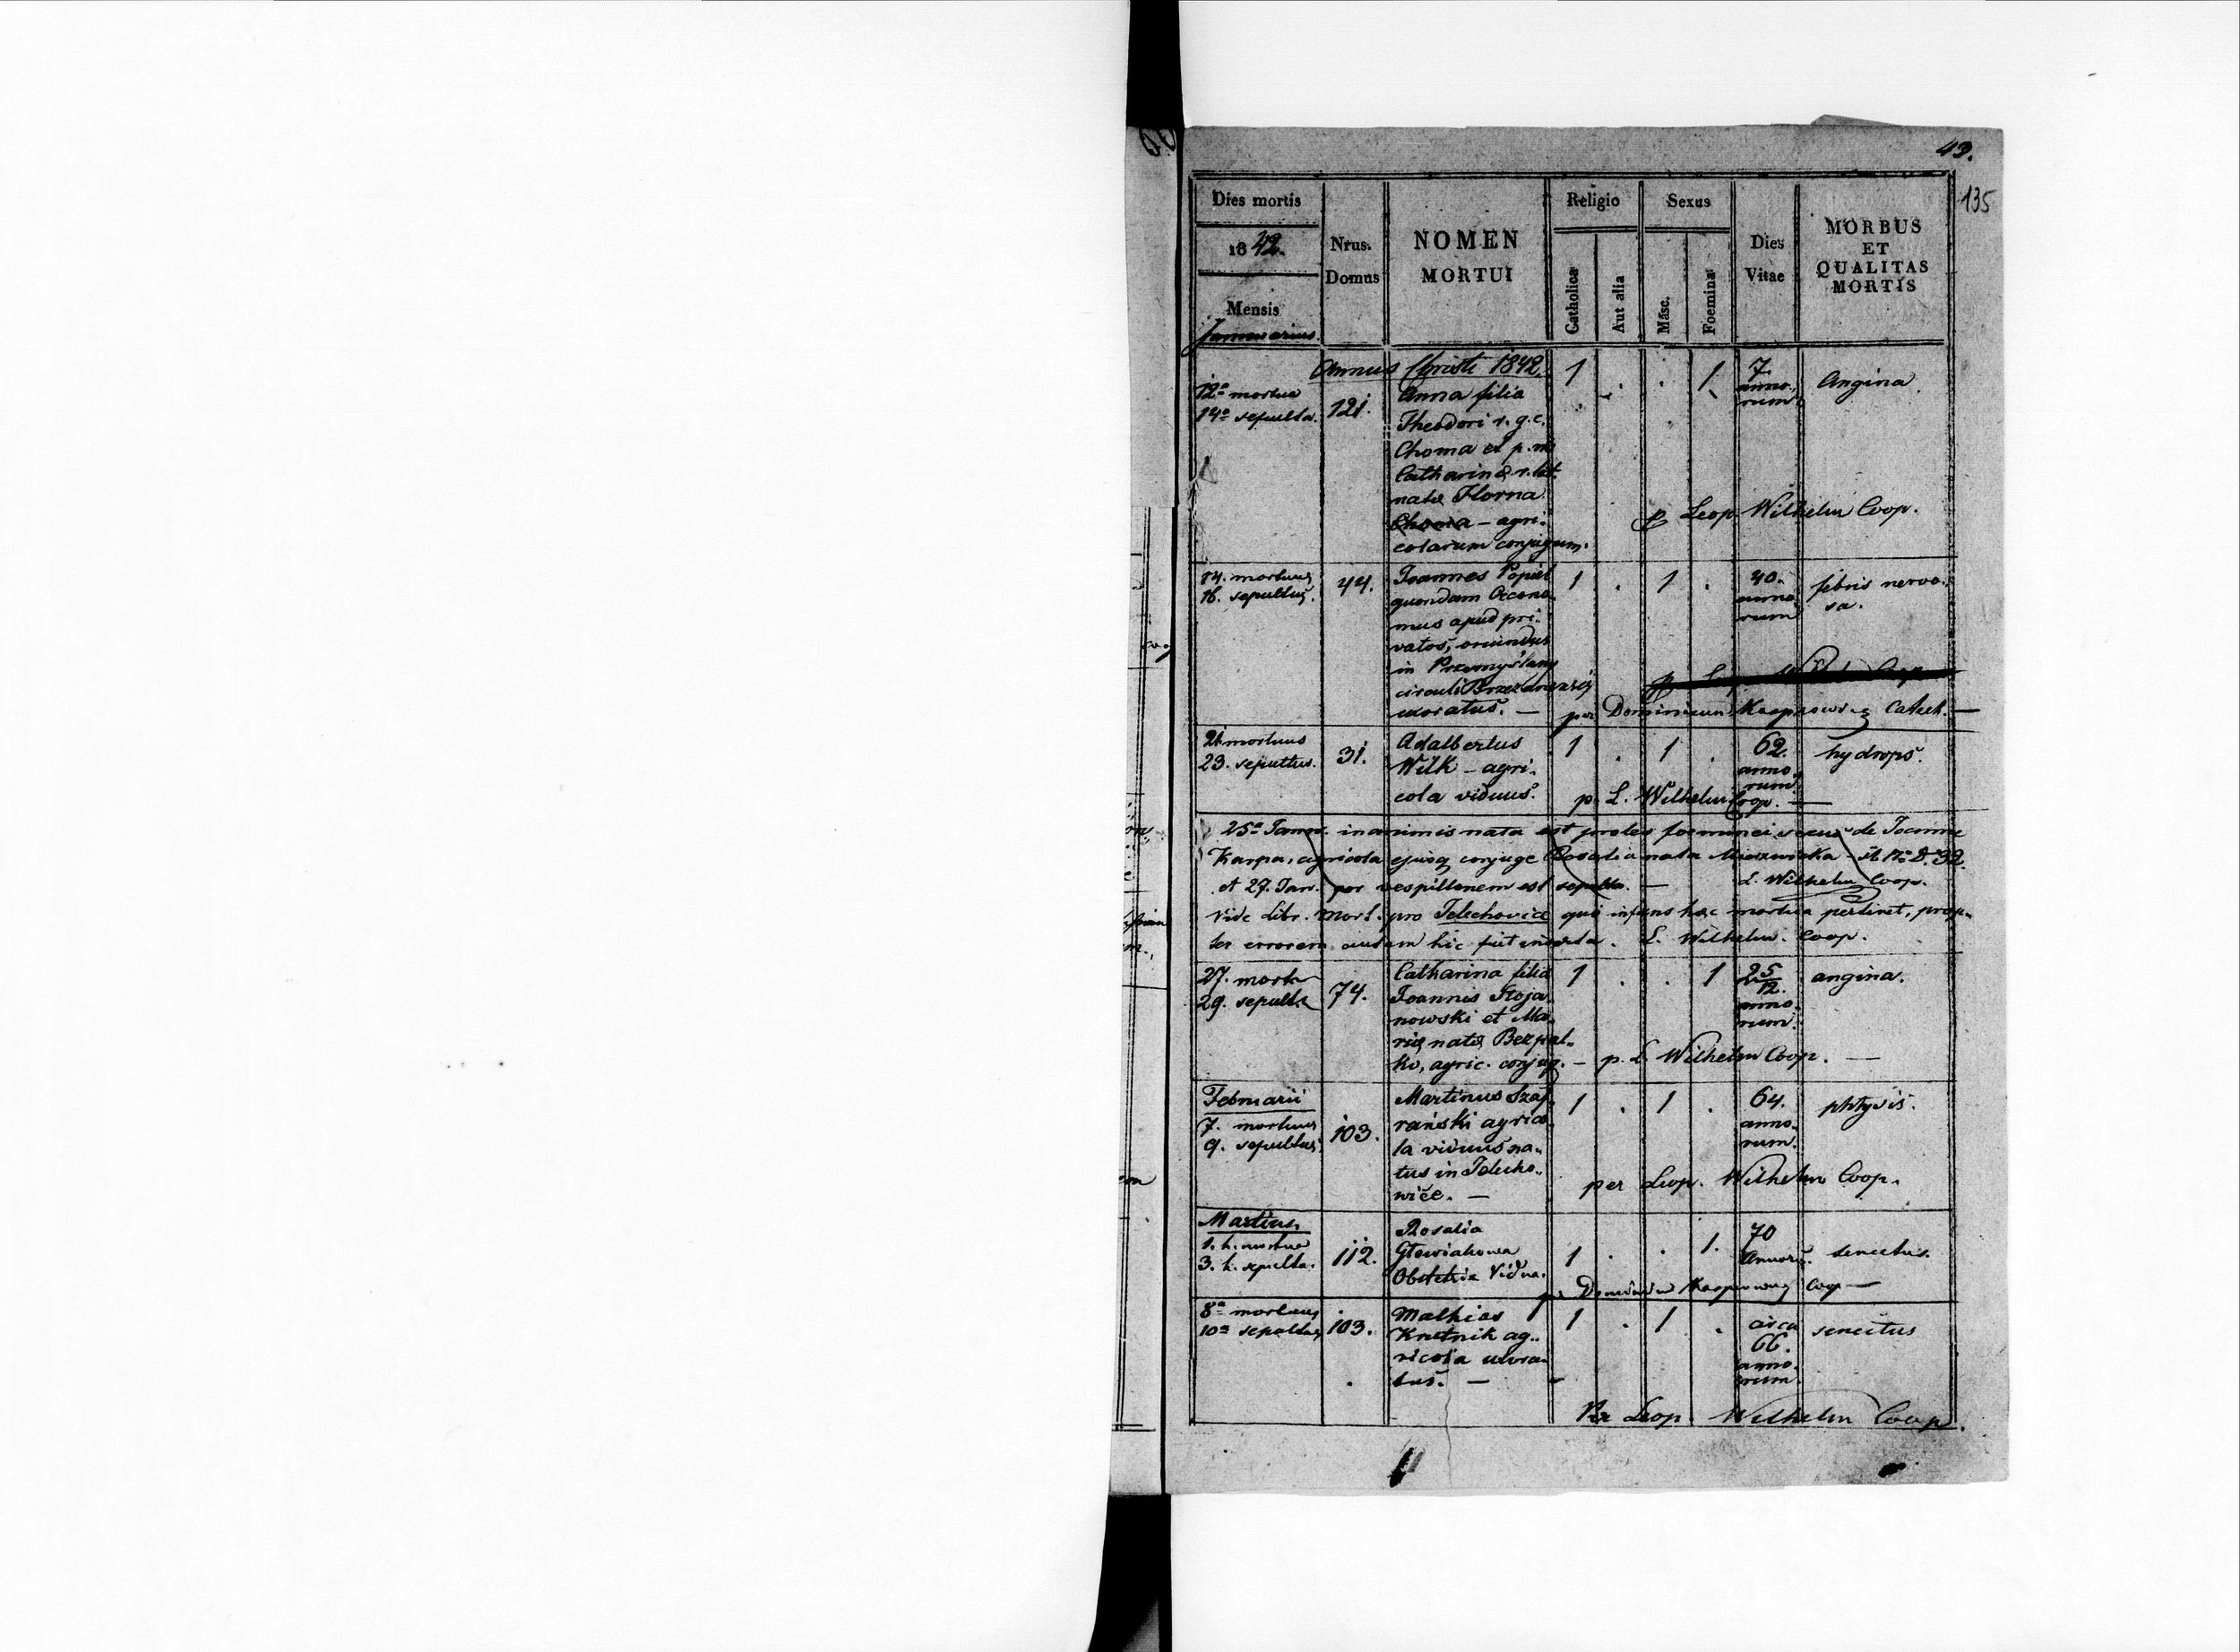 43.
135
Dies mortis
1842.
Mensis
Januarius.
Nrus.
Domus
NOMEN
MORTUI
Religio
Catholica
Aut alia
Sexus
Masc.
Foemina
Dies
Vitae
MORBUS
ET
QUALITAS
MORTIS
Annus Christi 1842.
12a mortua
14a sepulta.
121.
Anna filia
Theodori r. g. c.
Choma et p. m.
Catharinæ r. lat.
natæ Florna
Choma - agri-
colarum conjugum.
1 . . 1
7
anno-
rum
Angina
p Leop. Wilhelm Coop.
14. mortuus
16. sepultus.
44.
Joannes Popiel
quondam Oecono-
mus apud pri-
vatos, oriundus
in Przemyślany
circuli
uxoratus. —
1 . 1 .
40.
anno
rum
febris nervo-
sa.
per Dominicum Catech. —
21. mortuus
23. sepultus.
31.
Adalbertus
Wilk - agri-
cola viduus.
1 . 1 .
62.
anno-
rum
hydrops.
p. L. Wilhelm Coop. —
25a Januar. inanimis nata est proles foeminei sexus de Joanne
Karpa, agricola ejusq conjuge Rosalia nata - sub Nro D. 32.
et 27. Jan. per vespillonem est sepulta. — L. Wilhelm Coop.
Vide Libr. Mort. pro Telechovice quo infans hæc mortua pertinet, prop-
ter errorem autem hic fuit inserta. L. Wilhelm. Coop.
27. morta
29. sepulta
74.
Catharina filia
Joannis Stoja-
nowski et Ma-
riæ natæ Bezpal-
ko, agric. conjug. —
1 . . 1
2 5/12.
anno-
rum.
angina.
p. L. Wilhelm Coop. —
Februarii
7. mortuus
9. sepultus.
103.
Martinus Szaj-
rański agrico-
la viduus na-
tus in Telecho-
wice. —
1 . 1 .
64.
anno-
rum.
phtysis.
per Leop. Wilhelm Coop.
Martius.
1. h. mortua
3. h. sepulta.
112.
Rosalia
Głowiakowa
Obstetrix Vidua.
1 . . 1.
70
Annorū.
senectus.
Coop —
8a mortuus
10a sepultus
103.
Mathias
Kretnik ag-
ricola uxora-
tus. —
1 . 1 .
circa
66.
anno-
rum.
senectus
Per Leop. Wilhelm Coop.